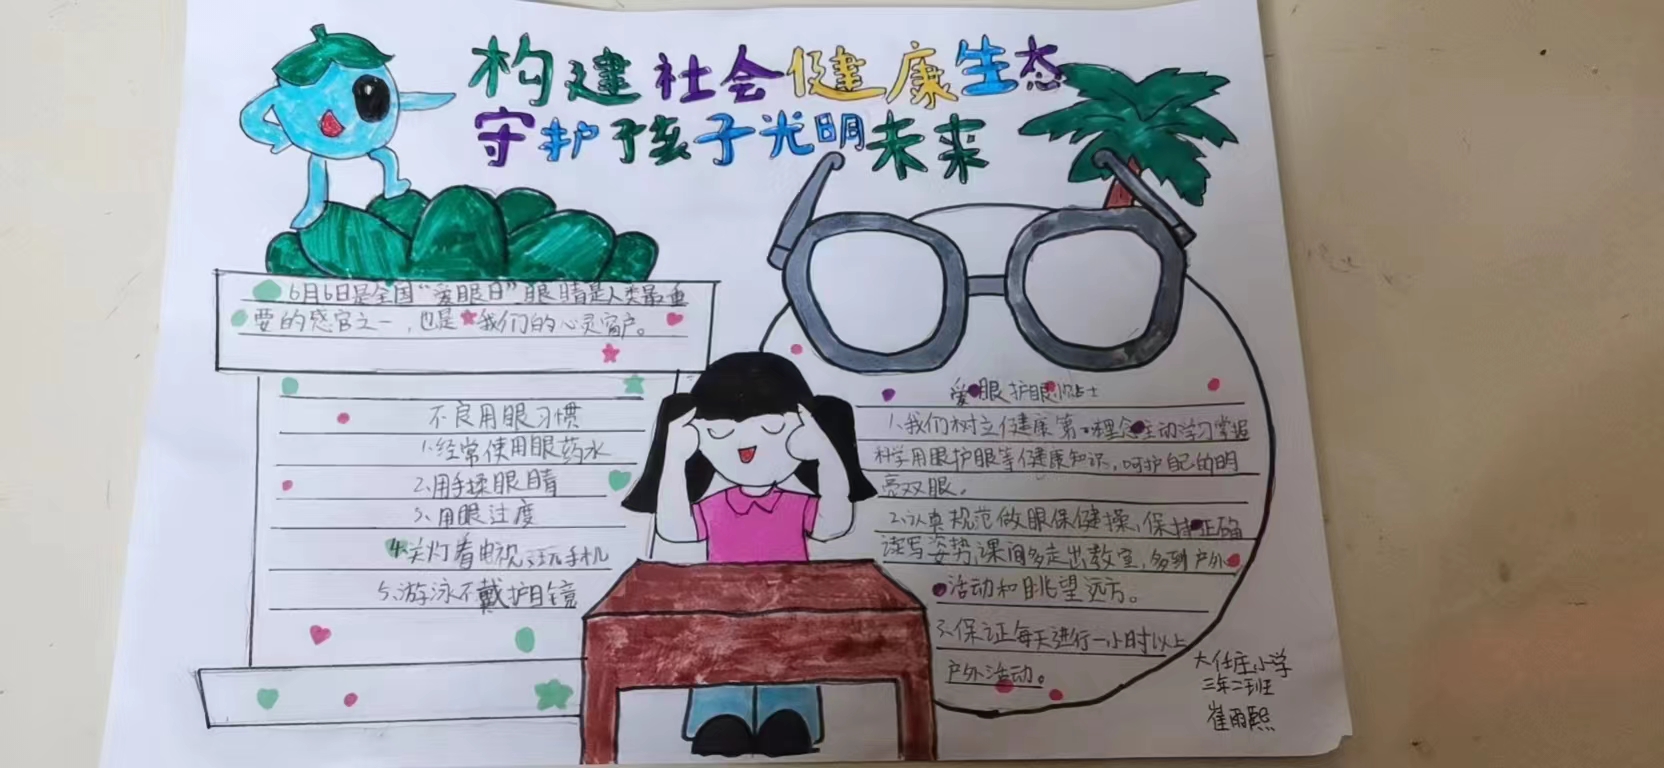 构建社会健康生态
守护孩子光明未来
6月6日是全国“爱眼日”眼睛是人类最重
要的感官之一,也是我们的心灵窗户。
不良用眼习惯
1.经常使用眼药水
2.用手揉眼睛
3、用眼过度
4.关灯看电视、玩手机
5、游泳不戴护目镜
爱眼护眼小贴士
1、我们树立健康第一理念主动学习掌握
科学用眼护眼等健康知识,呵护自己的明
亮双眼。
2、认真规范做眼保健操、保持正确
读写姿势,课间多走出教室,多到户外
活动和眺望远方。
3、保证每天进行一小时以上
户外活动。
大任庄小学
三年二班
崔雨熙